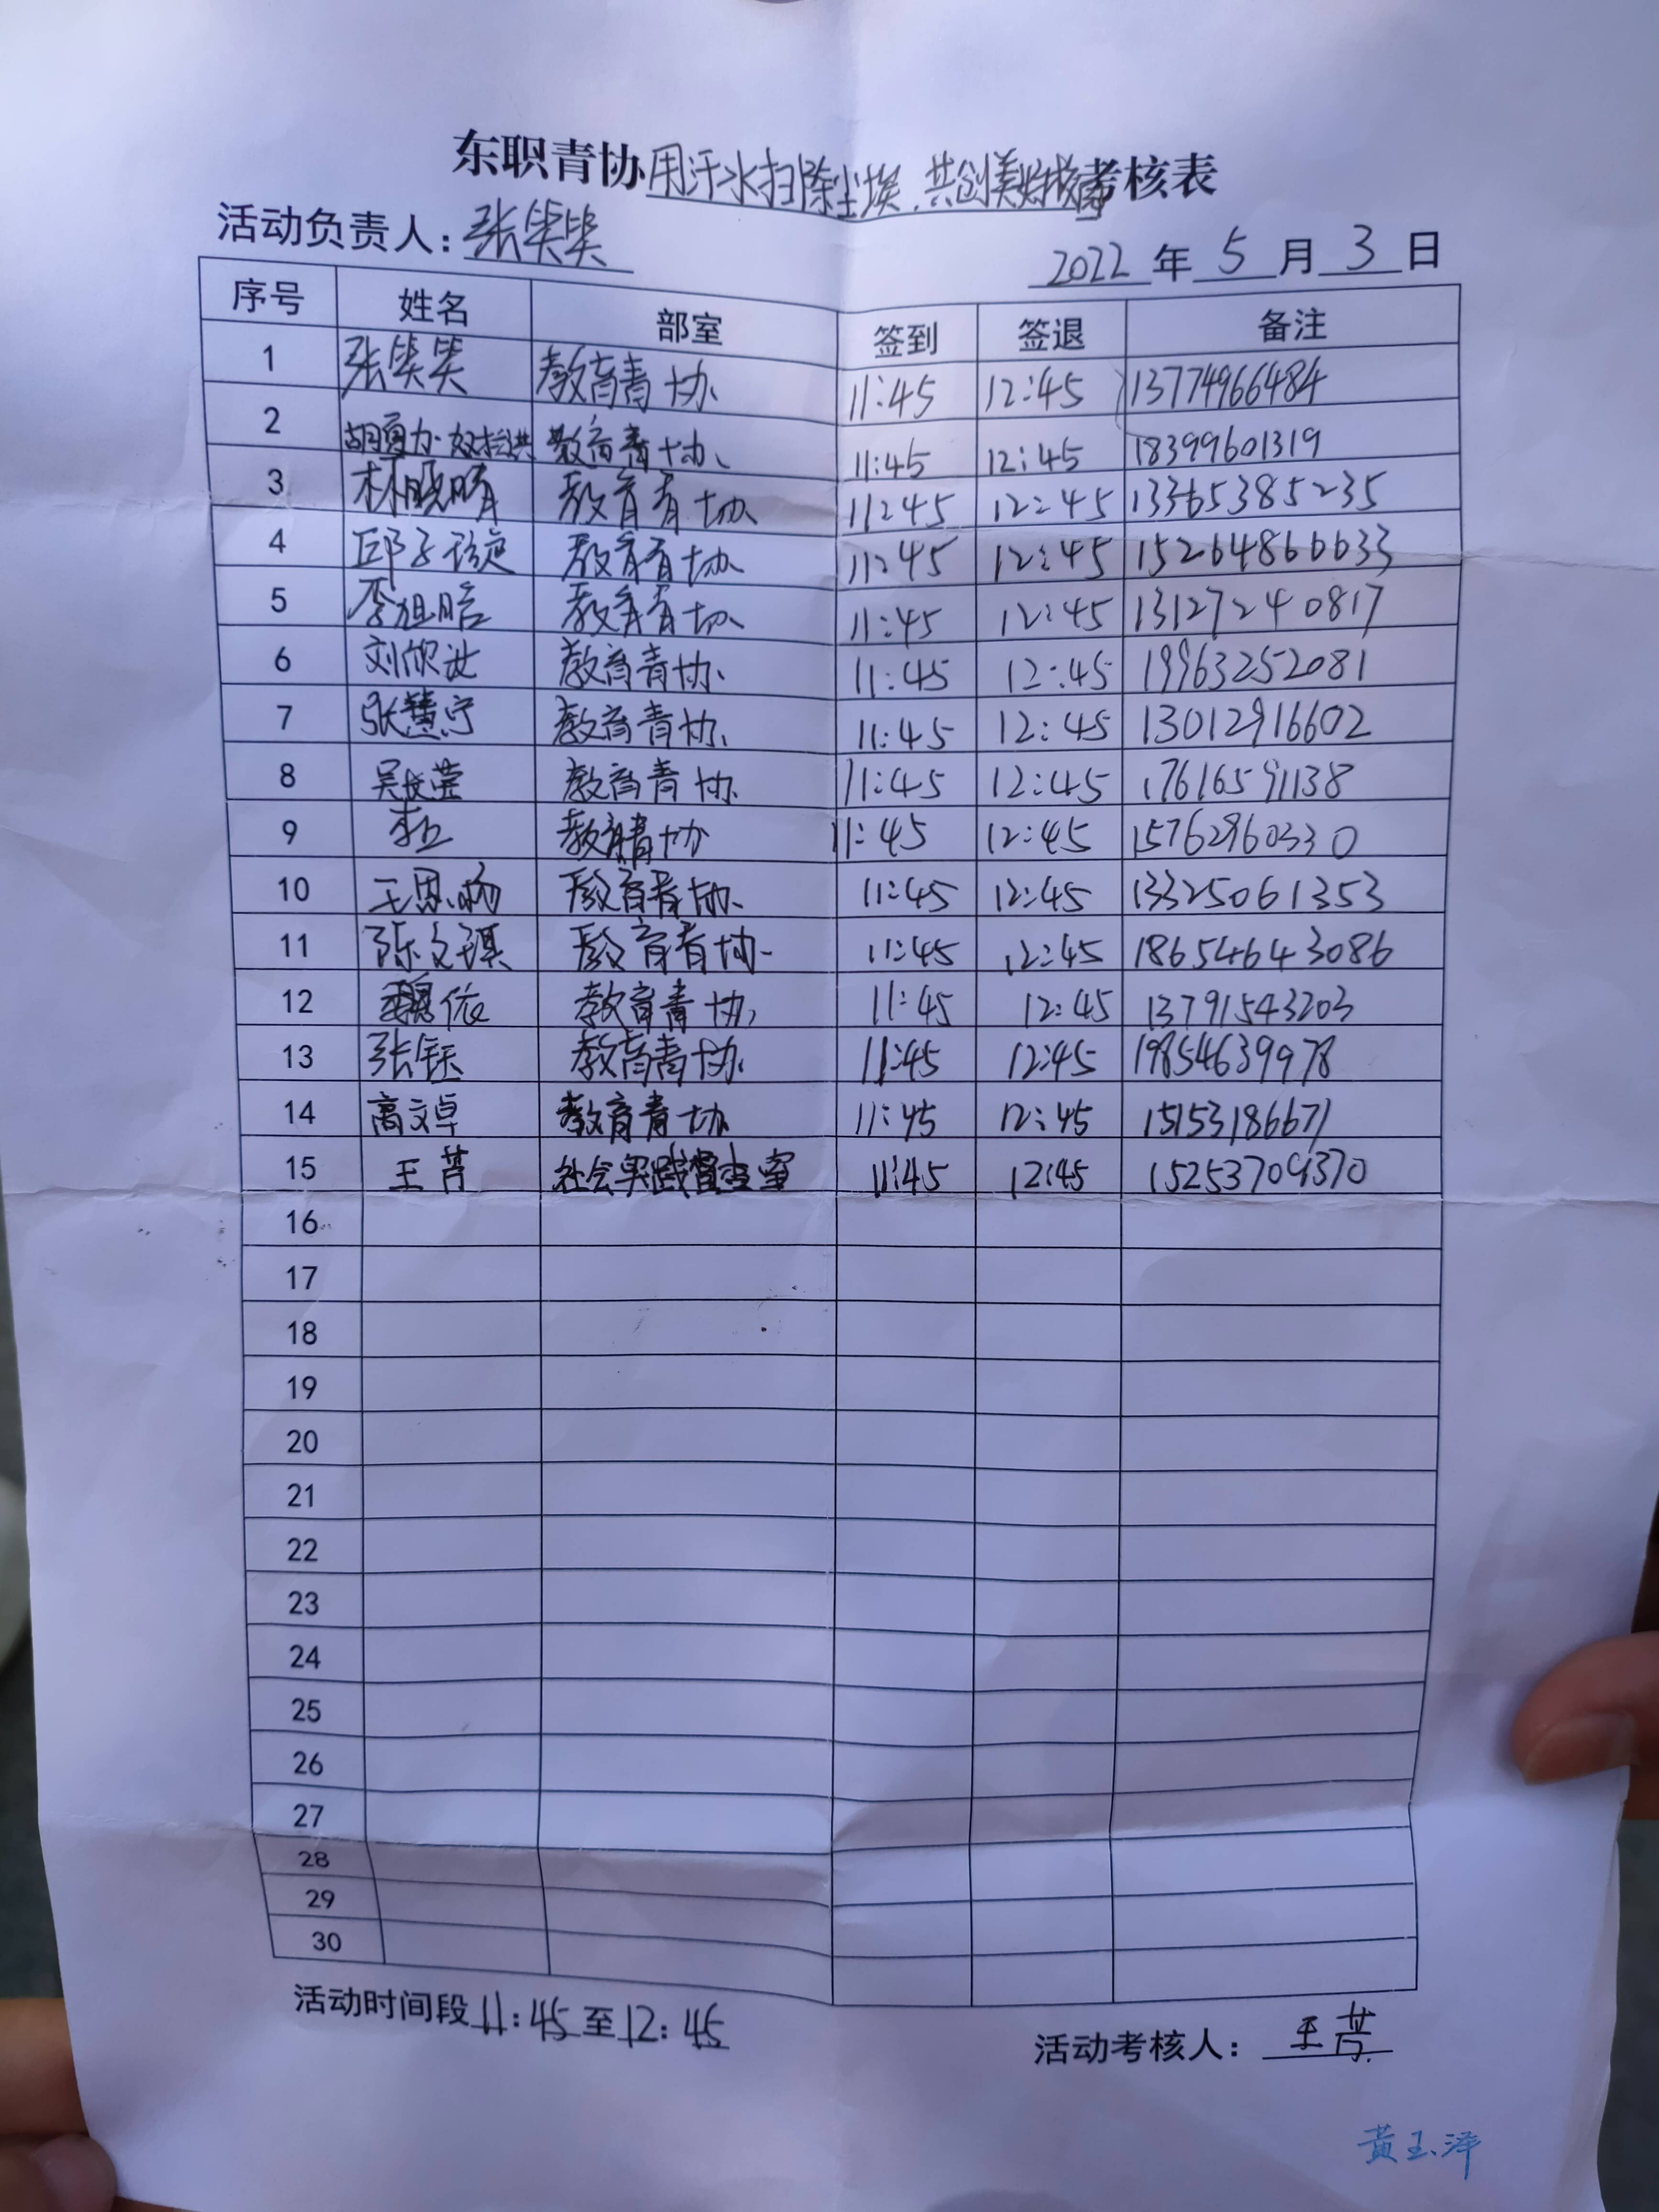 东职青协用汗水扫除尘埃.共创美好校园考核表
活动负责人:张笑笑
2022年5月3日
序号 姓名 部室 签到 签退 备注
1 张笑笑 教育青协 11:45 12:45 13774966484
2 教育青协 11:45 12:45 18399601319
3 林晓晴 教育青协 11:45 12:45 13365385235
4 邱子璇 教育青协 11:45 12:45 15264866633
5 李旭晗 教育青协 11:45 12:45 13127240817
6 刘欣汝 教育青协 11:45 12:45 19963252081
7 张慧宁 教育青协 11:45 12:45 13012916602
8 吴文莹 教育青协 11:45 12:45 17616591138
9 教育青协 11:45 12:45 15762960330
10 王思 教育青协 11:45 12:45 13325061353
11 陈文琪 教育青协 11:45 12:45 18654643086
12 魏依 教育青协 11:45 12:45 13791543203
13 张钰 教育青协 11:45 12:45 19854639978
14 高文卓 教育青协 11:45 12:45 15153186671
15 王芮 社会实践督查室 11:45 12:45 15253709370
16
17
18
19
20
21
22
23
24
25
26
27
28
29
30
活动时间段11:45至12:45
活动考核人:王芮
黄玉泽